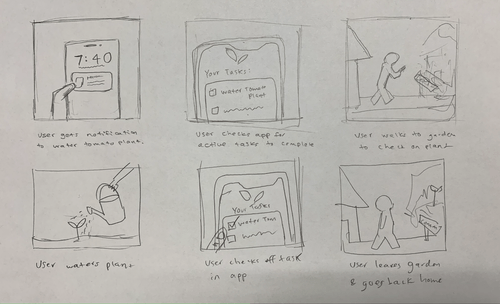 7:40
User gets notification
to water tomato plant.
Your Tasks:
Water Tomato
Plant
User checks app for
active tasks to complete
User walks to garden
to check on plant
User waters plant
Your Tasks
Water Tom
User checks off task
in app
User leaves garden
& goes back home